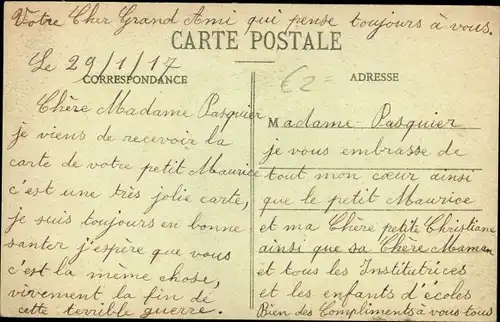 Votre Cher Grand Ami qui pense toujours à vous.
CARTE POSTALE
Le 29/1/17
CORRESPONDANCE
Chère Madame Pasquier
je viens de recevoir la
carte de votre petit Maurice
c'est une très jolie carte,
je suis toujours en bonne
santer j'espère que vous
c'est la meme chose,
vivement la fin de
cette terrible guerre.
€2=
ADRESSE
Madame Pasquier
je vous embrasse de
tout mon cœur ainsi
que le petit Maurice
et ma Chère petite Christiane
ainsi que sa Chère Maman
et tous les Institutrices
et les enfants d'écoles.
Bien des Compliments à vous tous